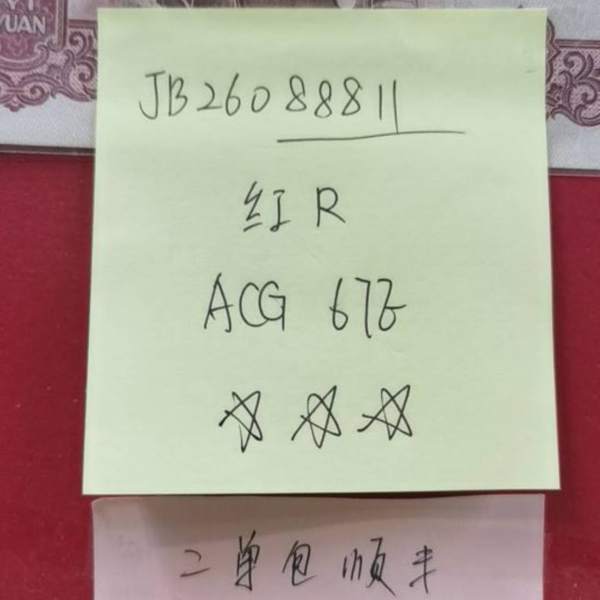 YUAN
JB26088811
红R
ACG 67E
☆ ☆ ☆
二单包顺丰